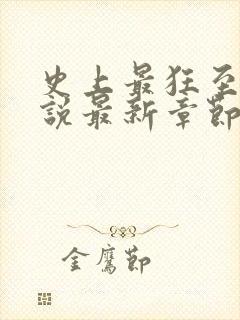 史上最狂至
說最新章節
金鷹節